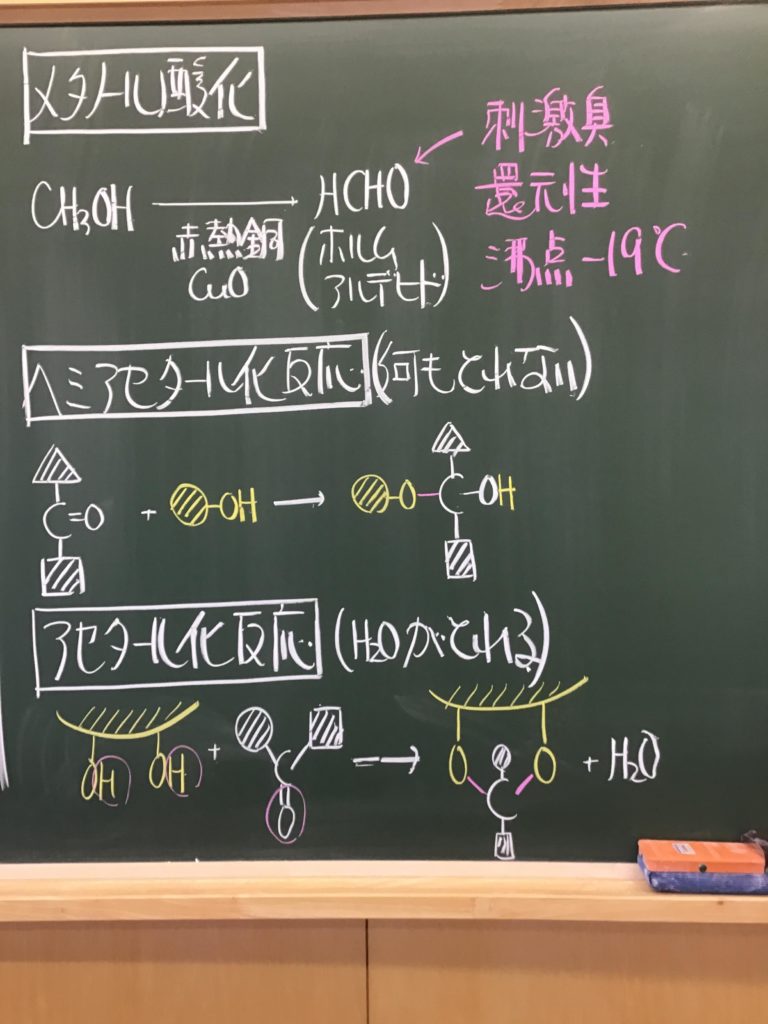 メタノール酸化
CH₃OH → HCHO
赤熱銅
CuO
(ホルムアルデヒド)
刺激臭
還元性
沸点-19℃
ヘミアセタール化反応(何もとれない)
C=O + -OH → -O-C-OH
アセタール化反応(H₂Oがとれる)
OH OH + C=O → O C O + H₂O